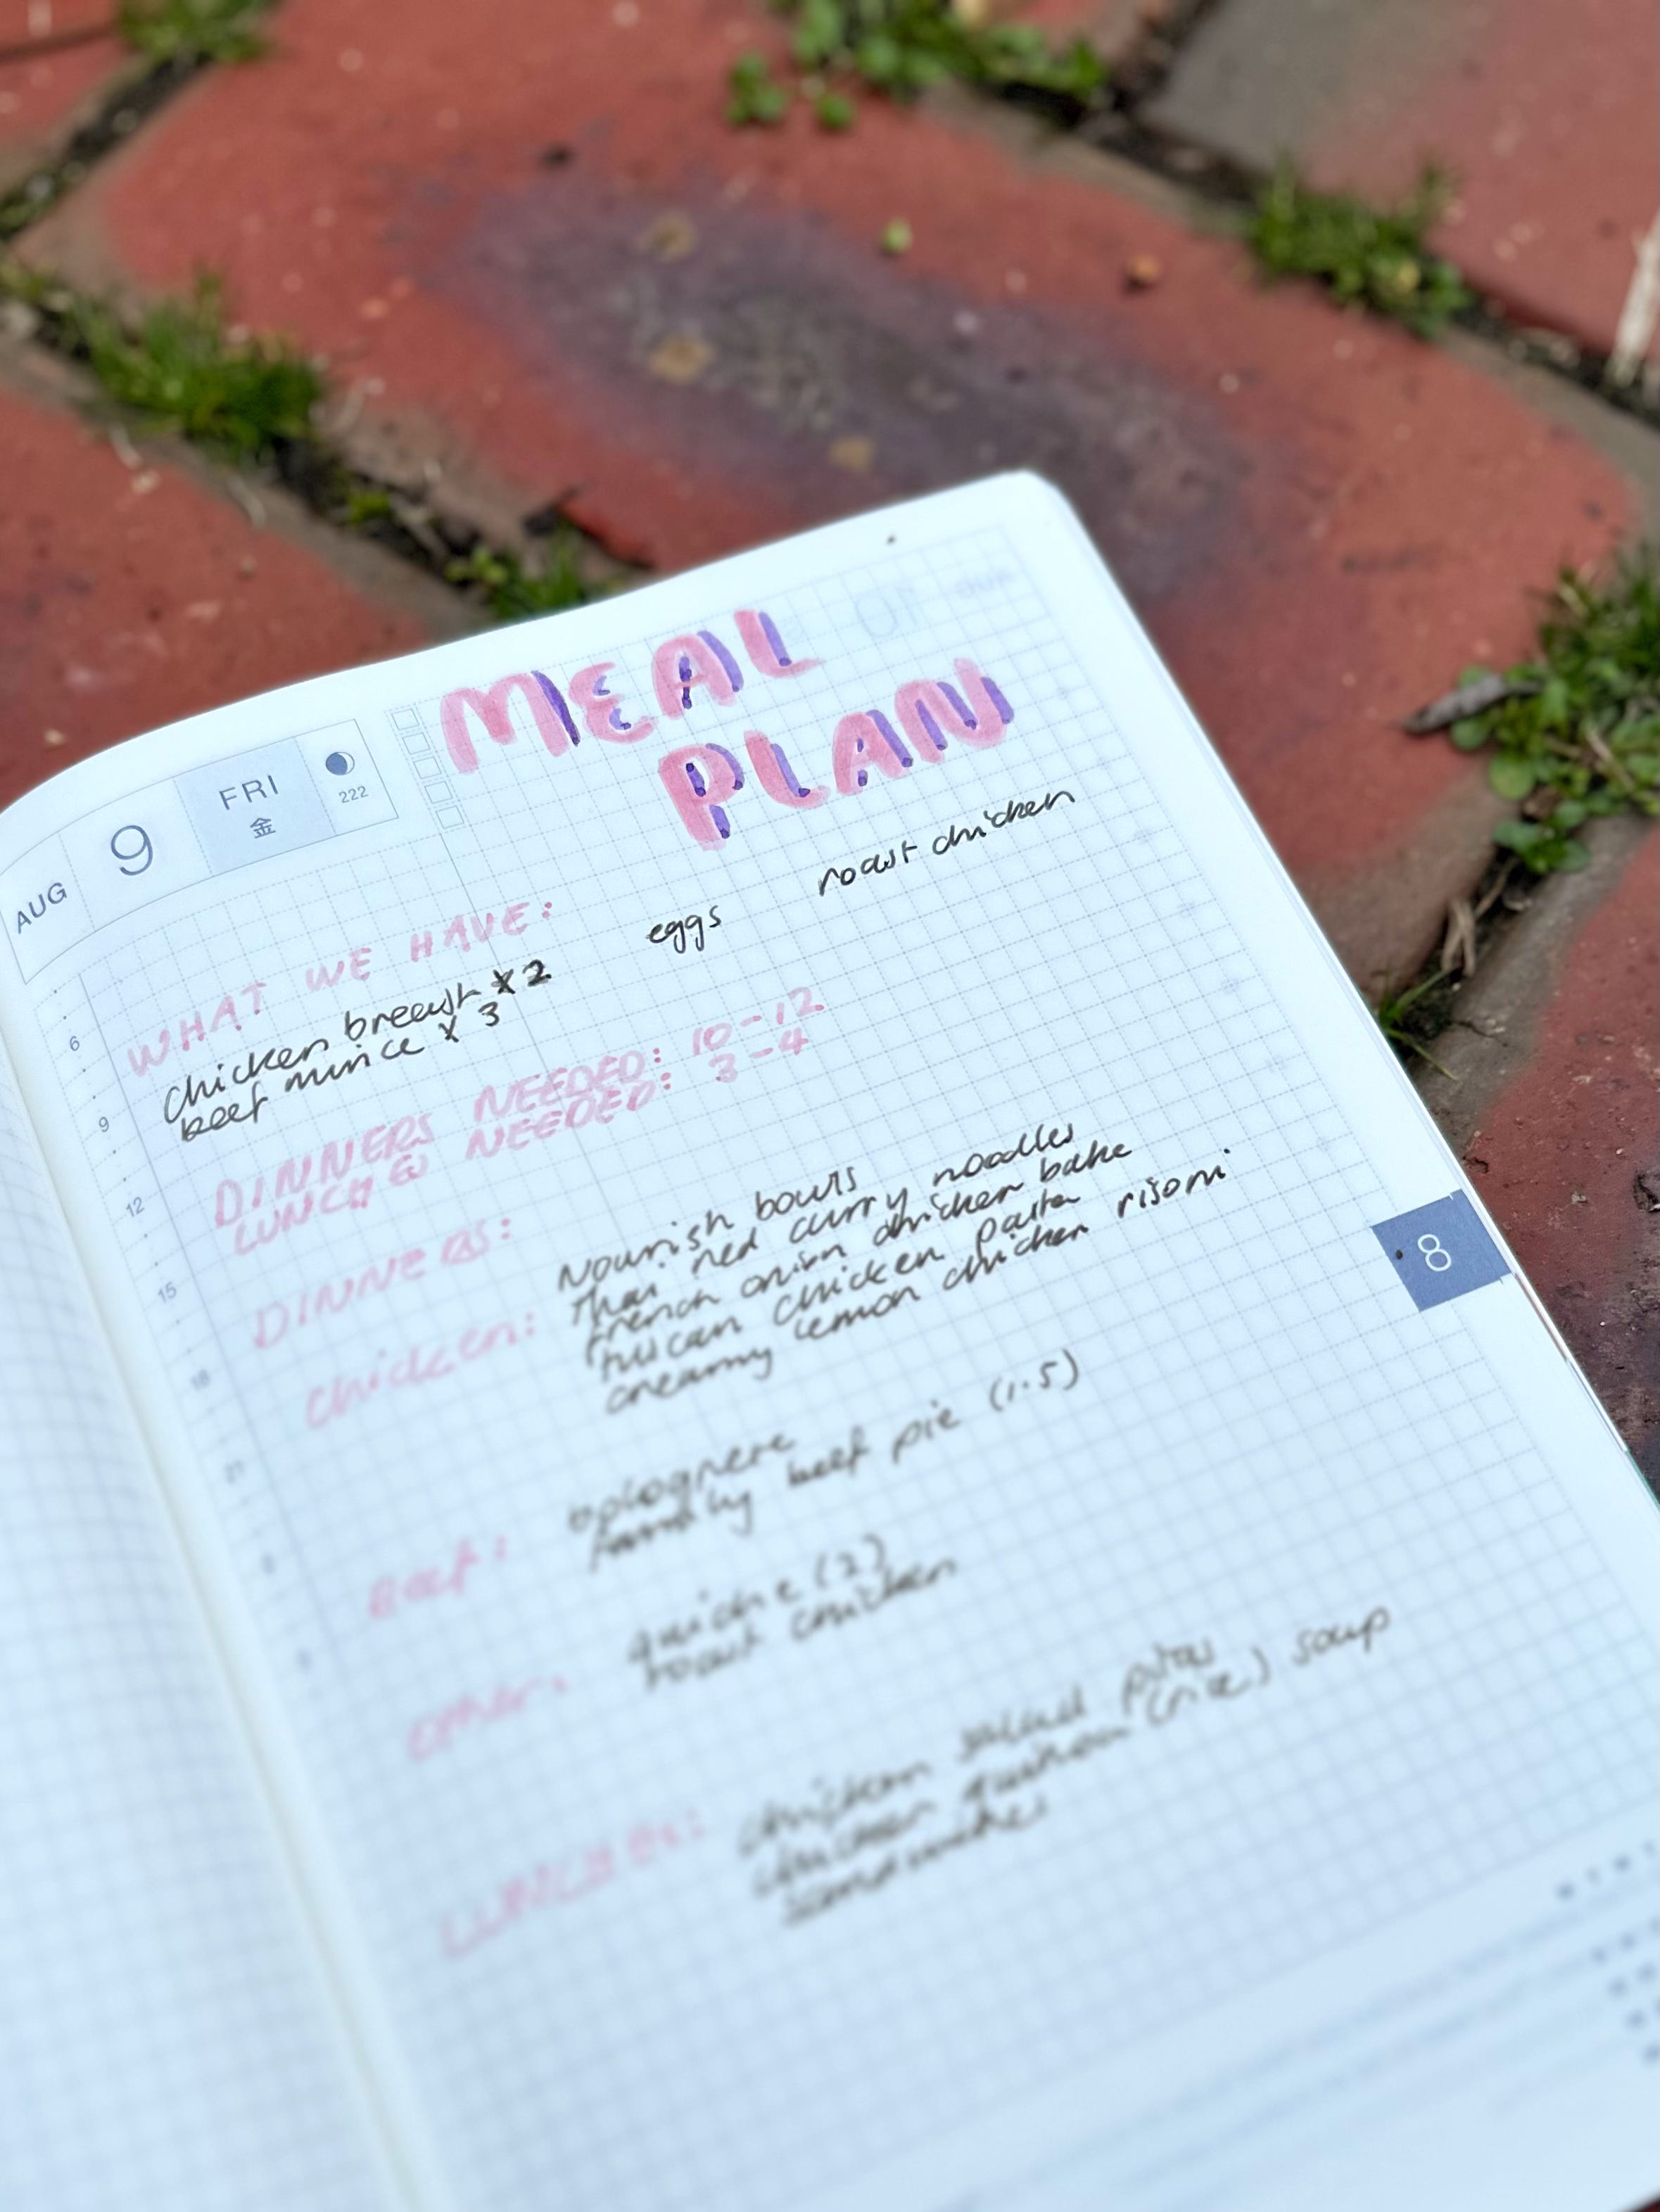 AUG 9 FRI 222
金
MEAL
PLAN
WHAT WE HAVE:
chicken breast x 2
eggs
roast chicken
beef mince x 3
DINNERS NEEDED: 10-12
LUNCHES NEEDED: 3-4
DINNERS:
Chicken:
Nourish bowls
Thai red curry noodles
french onion chicken bake
tuscan chicken pasta
creamy lemon chicken risoni
Beef:
bolognese
family beef pie (1.5)
Other:
quiche (2)
roast chicken
LUNCHES:
chicken salad pitas
chicken quinoa (rice) soup
sandwiches
6
9
12
15
18
21
8